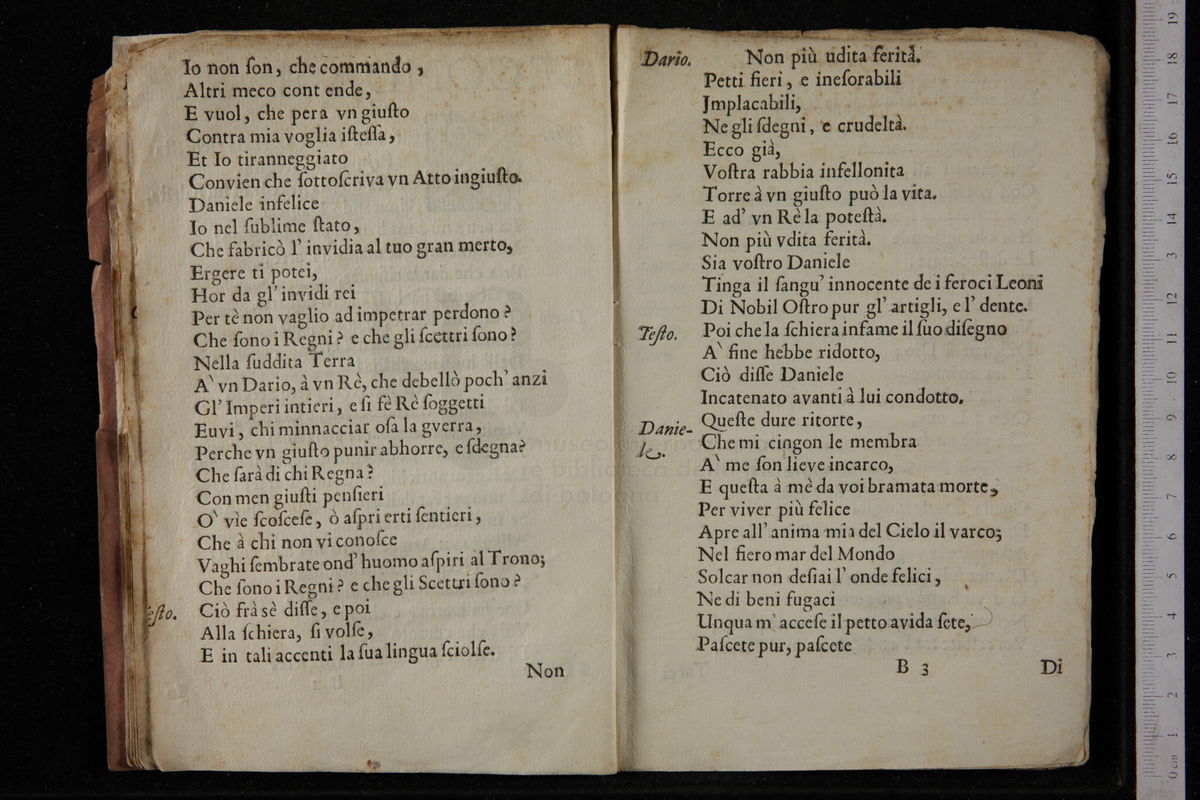 Io non ſon, che commando,
Altri meco cont ende,
E vuol, che pera vn giuſto
Contra mia voglia iſteſſa,
Et Io tiranneggiato
Convien che ſottoſcriva vn Atto ingiuſto.
Daniele infelice
Io nel ſublime ſtato,
Che fabricò l' invidia al tuo gran merto,
Ergere ti potei,
Hor da gl' invidi rei
Per tè non vaglio ad impetrar perdono?
Che ſono i Regni? e che gli ſcettri ſono?
Nella ſuddita Terra
A' vn Dario, à vn Rè, che debellò poch' anzi
Gl' Imperi intieri, e ſi fè Rè ſoggetti
Euvi, chi minnacciar oſa la gverra,
Perche vn giuſto punir abhorre, e ſdegna?
Che ſarà di chi Regna?
Con men giuſti penſieri
O' vie ſcoſceſe, ò aſpri erti ſentieri,
Che à chi non vi conoſce
Vaghi ſembrate ond' huomo aſpiri al Trono;
Che ſono i Regni? e che gli Scettri ſono?
eſto. Ciò frà sè diſſe, e poi
Alla ſchiera, ſi volſe,
E in tali accenti la ſua lingua ſciolſe.
Non
Dario. Non più udita ferità.
Petti fieri, e ineſorabili
Jmplacabili,
Ne gli ſdegni, e crudeltà.
Ecco già,
Voſtra rabbia infellonita
Torre à vn giuſto può la vita.
E ad' vn Rè la poteſtà.
Non più vdita ferità.
Sia voſtro Daniele
Tinga il ſangu' innocente de i feroci Leoni
Di Nobil Oſtro pur gl' artigli, e l' dente.
Teſto. Poi che la ſchiera infame il ſuo diſegno
A' fine hebbe ridotto,
Ciò diſſe Daniele
Incatenato avanti à lui condotto.
Danie- Queſte dure ritorte,
le. Che mi cingon le membra
A' me ſon lieve incarco,
E queſta à mè da voi bramata morte,
Per viver più felice
Apre all' anima mia del Cielo il varco;
Nel fiero mar del Mondo
Solcar non deſiai l' onde felici,
Ne di beni fugaci
Unqua m' acceſe il petto avida ſete,
Paſcete pur, paſcete
B 3 Di